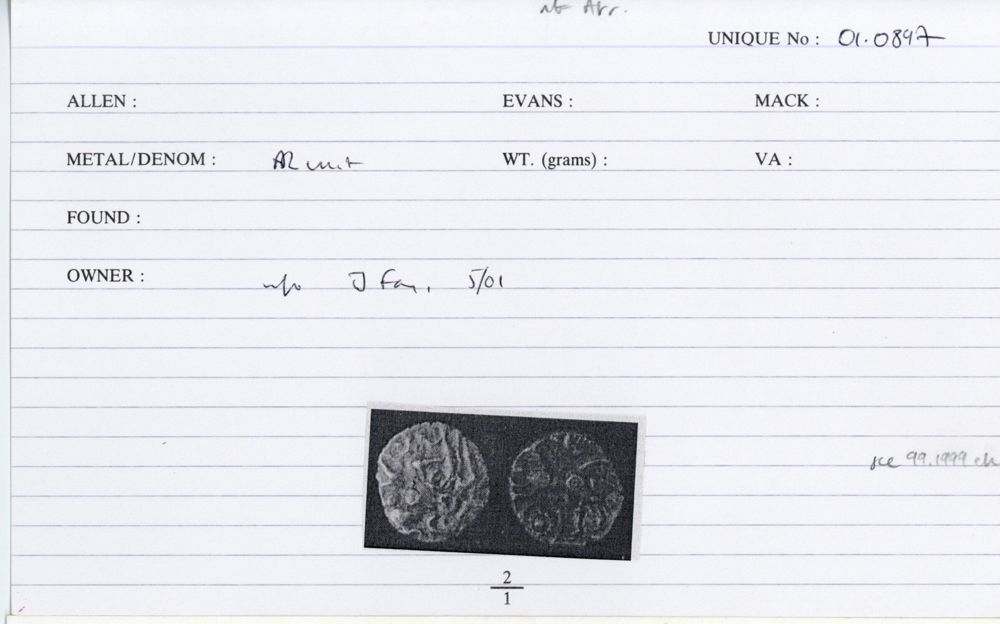 Atr.
UNIQUE No : 01.0897
ALLEN : EVANS : MACK :
METAL/DENOM : AR unit WT. (grams) : VA :
FOUND :
OWNER : J Fay, 5/01
see 99.1999 ch
2
1